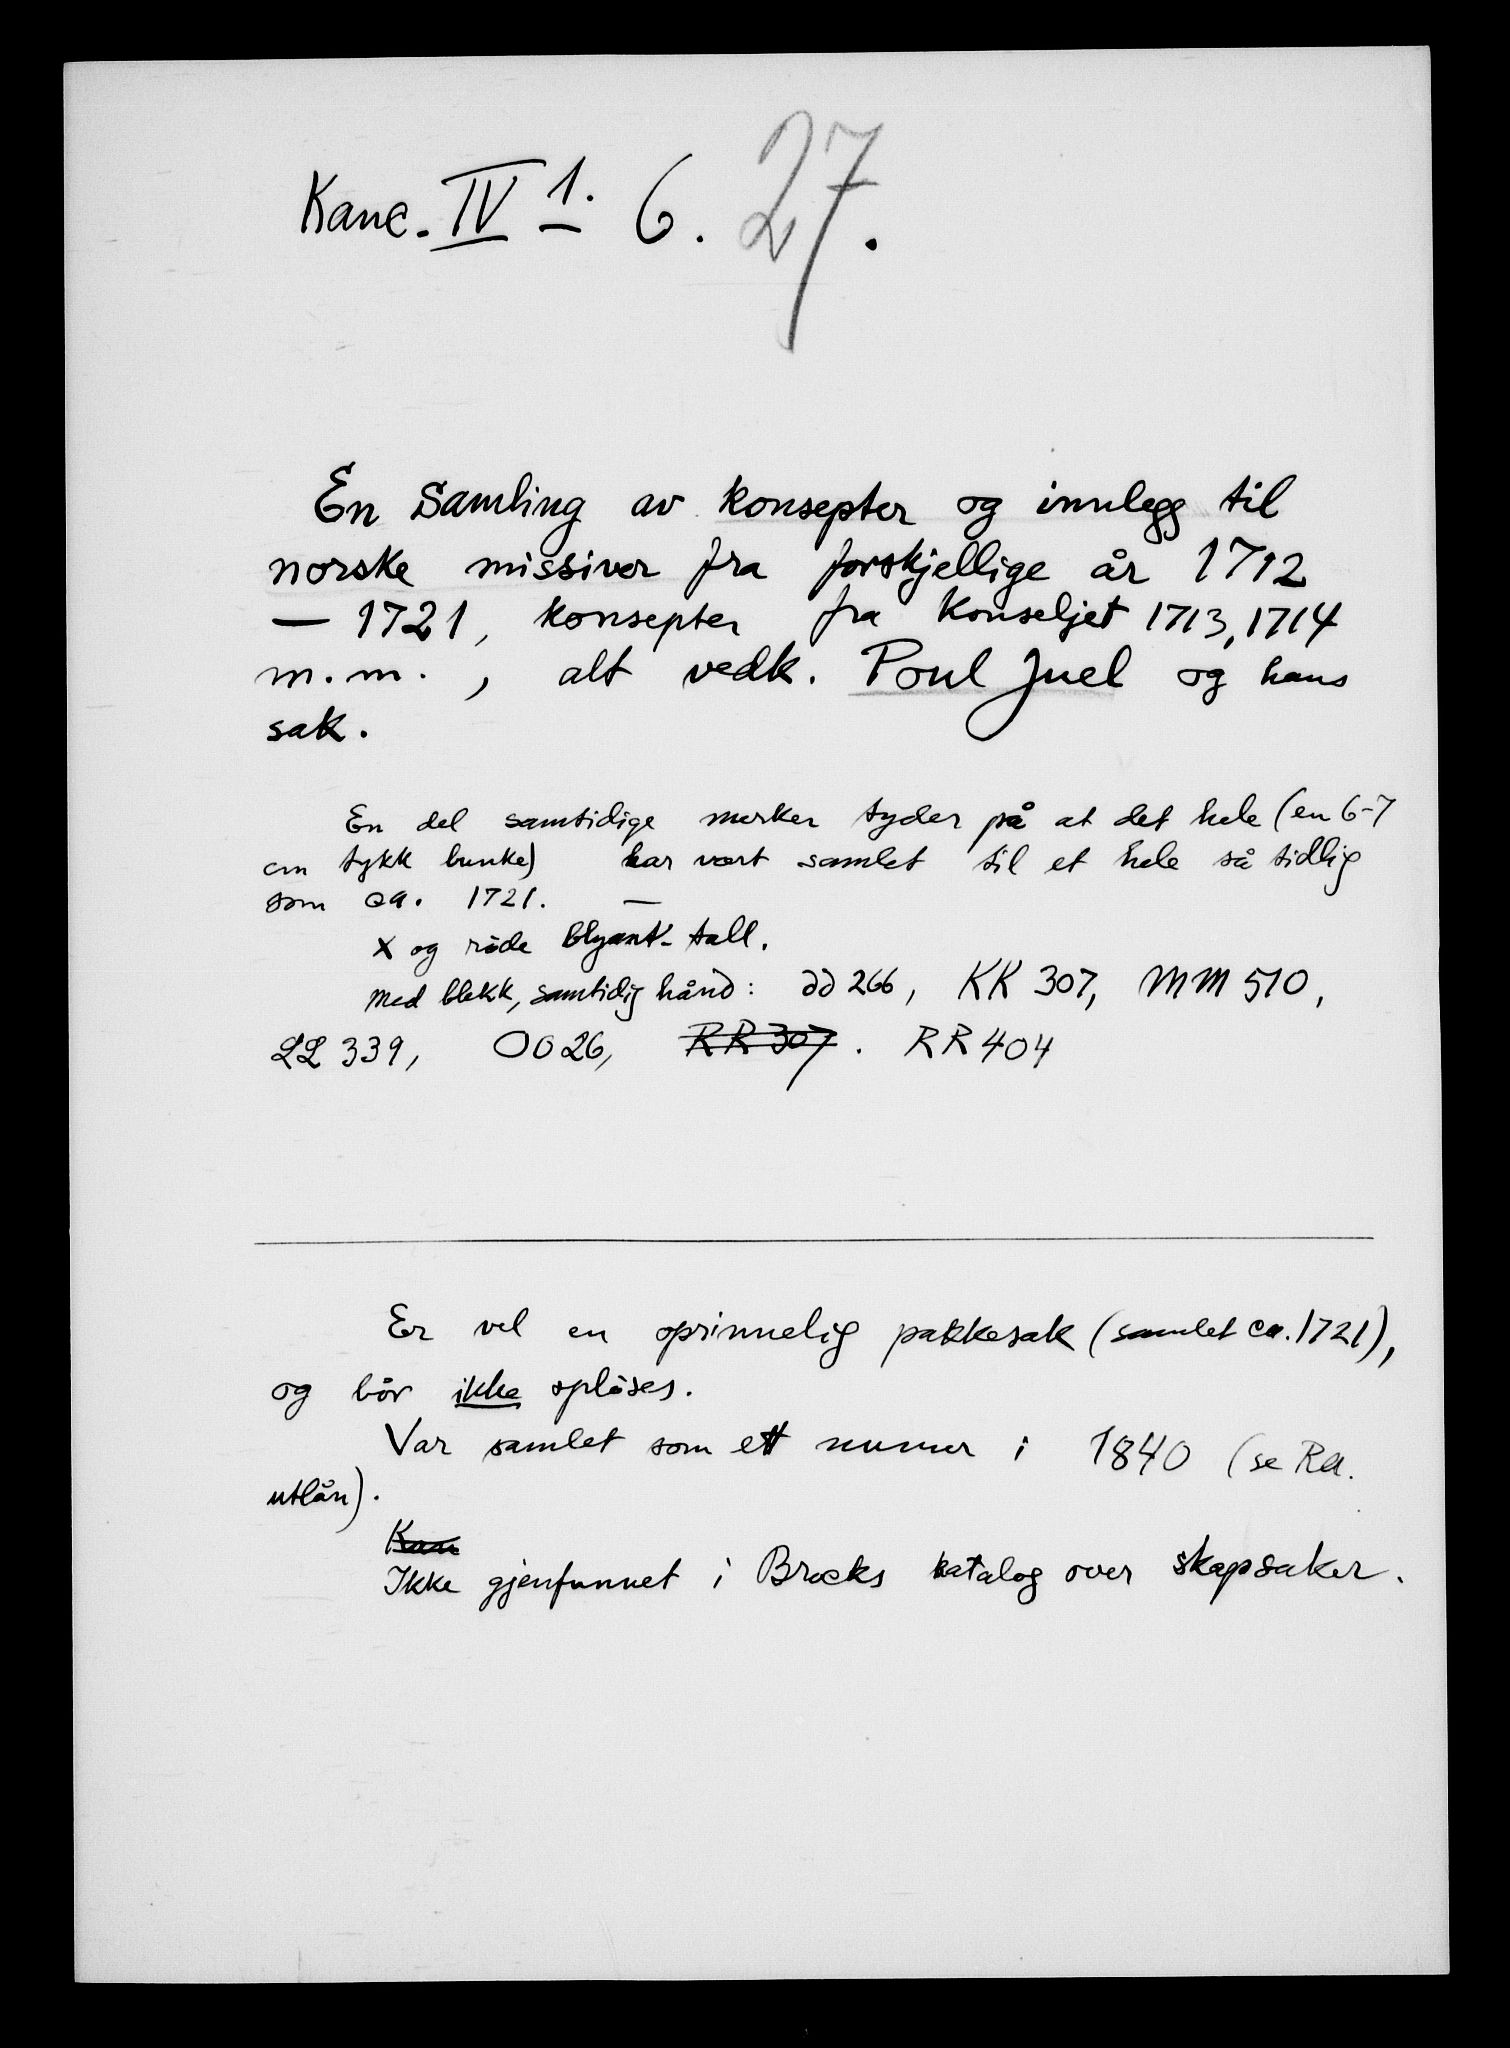 Kanc. IV 1. 6. 27.
En Samling av konsepter og innlegg til
norske missiver fra forskjellige år 1712
— 1721, konsepter fra Konseljet 1713, 1714
m.m., alt vedk. Poul Juel og hans
sak.
En del samtidige merker tyder på at det hele (en 6-7
cm tykk bunke) har vært samlet til et hele så tidlig
som ca. 1721. —
x og røde blyant-tall.
Med blekk, samtidig hånd: dd 266, KK 307, MM 510,
LL 339, OO 26, RR 307. RR 404
Er vel en oprinnelig pakkesak (samlet ca. 1721),
og bør ikke opløses.
Var samlet som ett numer i 1840 (se Ra.
utlån).
Kan
Ikke gjenfunnet i Brocks katalog over skapsaker.